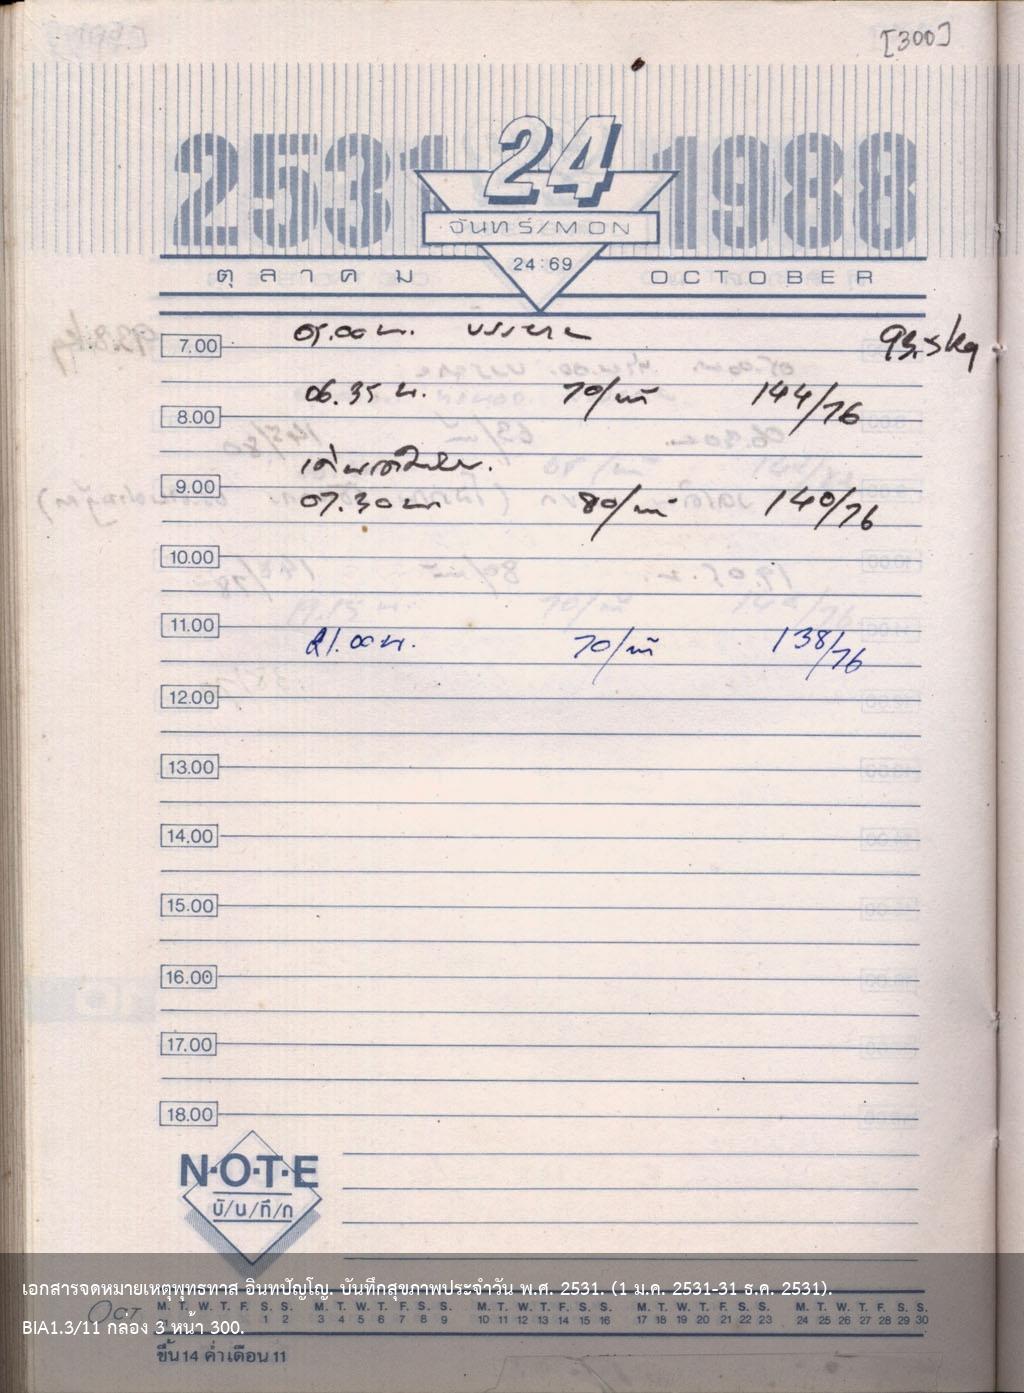 [300]
2531
24
1988
จันทร์/MON
24:69
ตุลาคม
OCTOBER
7.00 05.00 น. บรรยาย 93.5 kg
06.35 น. 70/นาที 144/76
8.00
9.00
07.30 น. 80/นาที 140/76
10.00
11.00
21.00 น. 70/นาที 138/76
12.00
13.00
14.00
15.00
16.00
17.00
18.00
N·O·T·E
บั/น/ทึ/ก
เอกสารจดหมายเหตุพุทธทาส อินทปัญโญ. บันทึกสุขภาพประจำวัน พ.ศ. 2531. (1 ม.ค. 2531-31 ธ.ค. 2531).
OCT M. T. W. T. F. S. S. M. T. W. T. F. S. S. M. T. W. T. F. S. S. M. T. W. T. F. S. S. M. T. W. T. F. S. S.
1 2 3 4 5 6 7 8 9 10 11 12 13 14 15 16 17 18 19 20 21 22 23 24 25 26 27 28 29 30
BIA1.3/11 กล่อง 3 หน้า 300.
ขึ้น 14 ค่ำ เดือน 11